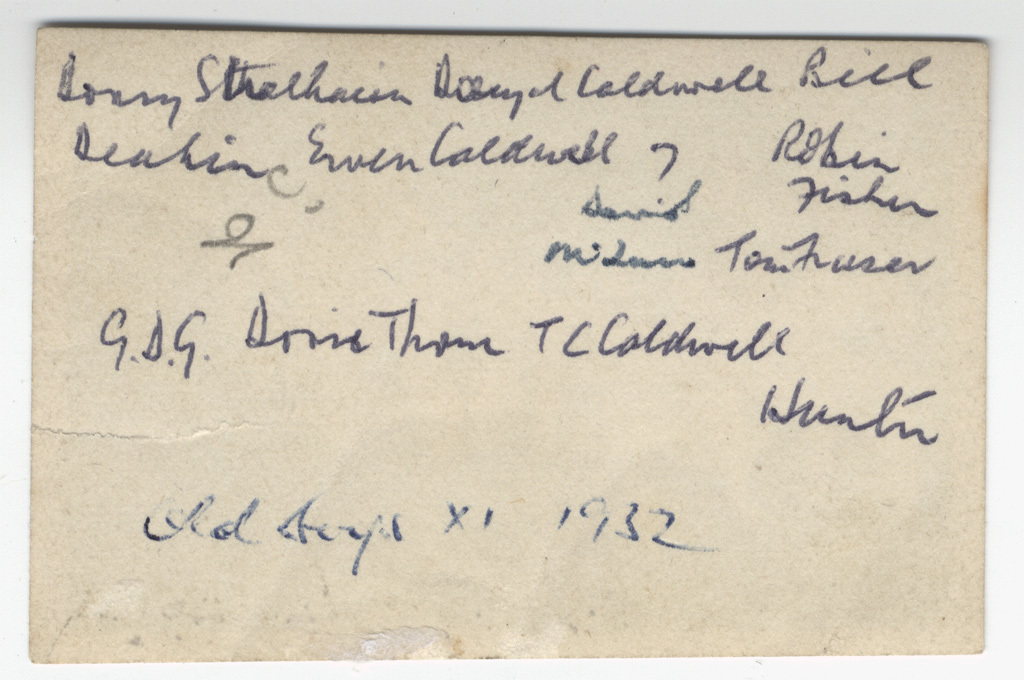 Strathairn Caldwell Bill
Deakin Ewen Caldwell Robin
David Fisher
Tom Fraser
G.D.G. Thom T C Caldwell
Hunter
Old Boys XI 1932